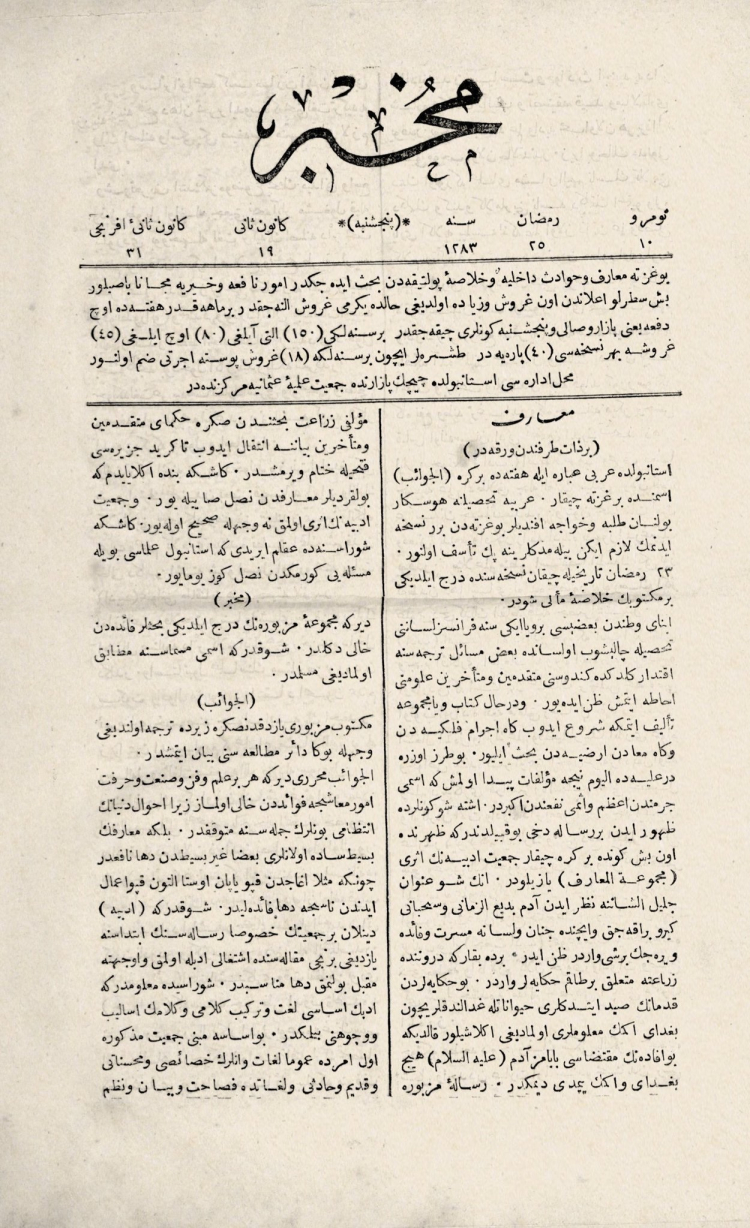 مخبر
نومرو رمضان سنه *(پنجشنبه)* كانون ثانی كانون ثانئ افرنجی
١٠ ٢٥ ١٢٨٣ ١٩ ٣١
بوغزته معارف وحوادث داخلیه وخلاصهٔ پولتیقه‌دن بحث ایده جكدر امور نافعه وخیریه مجانا باصیلور
بش سطرلو اعلاندن اون غروش وزیاده اولدیغی حالده یكرمی غروش النه‌جقدر برماهه قدر هفته‌ده اوچ
دفعه یعنی بازار وصالی وپنجشنبه كونلری چیقه‌جقدر برسنه‌لكی (١٥٠) التی آیلغی (٨٠) اوچ ایلغی (٤٥)
غروشه بهر نسخه‌سی (٤٠) پاره‌یه در طشره‌لر ایچون برسنه‌لكه (١٨) غروش پوسته اجرتی ضم اولنور
محل اداره سی استانبولده چیچك پازارنده جمعیت علمیهٔ عثمانیه مركزنده‌در
معارف
(برذات طرفندن ورقه‌در)
استانبولده عربی عباره ایله هفته‌ده بركره (الجوائب)
اسمنده برغزته چیقار . عربیه تحصیلنه هوسكار
بولنان طلبه وخواجه افندیلر بوغزته‌دن برر نسخه
ایدنمك لازم ایكن بیله مدكلرینه پك تأسف اولنور .
٢٣ رمضان تاریخیله چیقان نسخه سنده درج ایلدیكی
برمكتوبك خلاصهٔ مألی شودر .
ابنای وطندن بعضیسی برویاایكی سنه فرانسز لسانی
تحصیله چالیشوب اولسانده بعض مسائل ترجمه سنه
اقتدار كلدكده كندوسنی متقدمین ومتأخرین علومنی
احاطه ایتمش ظن ایده یور . ودرحال كتاب ویا مجموعه
تألیف ایتمكه شروع ایدوب كاه اجرام فلكیه دن
وكاه معادن ارضیه دن بحث ایلیور . بوطرز اوزره
درعلیه ده الیوم نیجه مؤلفات پیدا اولمش كه اسمی
جرمندن اعظم واثمی نفعندن اكبردر . اشته شو كونلرده
ظهور ایدن بررساله دخی بوقبیلدندركه ظهرنده
اون بش كونده بركره چیقار جمعیت ادبیه نك اثری
(مجموعة المعارف) یازیلودر . انك شو عنوان
جلیل الشاننه نظر ایدن آدم بدیع الزمانی وسحبانی
كیرو براقه‌جق وایچنده جنان ولسانه مسرت وفائده
ویره‌جك برشی واردر ظن ایدر . برده بقاركه دروننده
زراعته متعلق برطاقم حكایه لر واردر . بوحكایه لردن
قدمانك صید ایتدكلری حیواناتله غدالندقلریچون
بغدای اكمك معلوملری اولمادیغی اكلاشیلور قالدیكه
بوافاده‌نك مقتضاسی بابامز آدم (علیه السلام) هیچ
بغدای واكمك یمدی دیمكدر . رسالهٔ مزبوره
مؤلفی زراعت بحثندن صكره حكمای متقدمین
ومتأخرین بیاننه انتقال ایدوب تا كرید جزیره‌سی
فتحیله ختام ویرمشدر . كاشكه بنده اكلایابلیدم كه
بولقردیلر معارفدن نصل صاییله یور . وجمعیت
ادبیه نك اثری اولمق نه وجهله صحیح اوله یور . كاشكه
شوراسنه ده عقلم ایریدی كه استانبول علماسی بویله
مسئله یی كورمكدن نصل كوز یومایور .
(مخبر)
دیركه مجموعهٔ مزبوره نك درج ایلدیكی بحثلر فائده دن
خالی دكلدر . شوقدركه اسمی مسماسنه مطابق
اولمادیغی مسلمدر .
(الجوائب)
مكتوب مزبوری یازدقدنصكره زیرده ترجمه اولندیغی
وجهله بوكا دائر مطالعه سنی بیان ایتمشدر .
الجوائب محرری دیركه هر برعلم وفن وصنعت وحرفت
امور معاشیجه فوائددن خالی اولماز زیرا احوال دنیانك
انتظامی بونلرك جمله سنه متوقفدر . بلكه معارفك
بسیط ساده اولانلری بعضا غیر بسیطدن دها نافعدر
چونكه مثلا اغاجدن قپو یاپان اوستا التون قپو اعمال
ایدندن ناسیجه دها فائده لیدر . شوقدركه (ادبیه)
دینلان برجمعیتك خصوصا رساله سنك ابتداسنه
یازدیغی برنجی مقاله سنده اشتغالی ادبله اولمق واوجهته
مقبل بولنمق دها مناسبدر . شوراسیده معلومدركه
ادبك اساسی لغت وتركیب كلامی وكلامك اسالیب
ووجوهنی بیلمكدر . بواساسه مبنی جمعیت مذكوره
اول امرده عموما لغات وانلرك خصائصی ومحسناتی
وقدیم وحادثی ولغاتده فصاحت وبیان ونظم